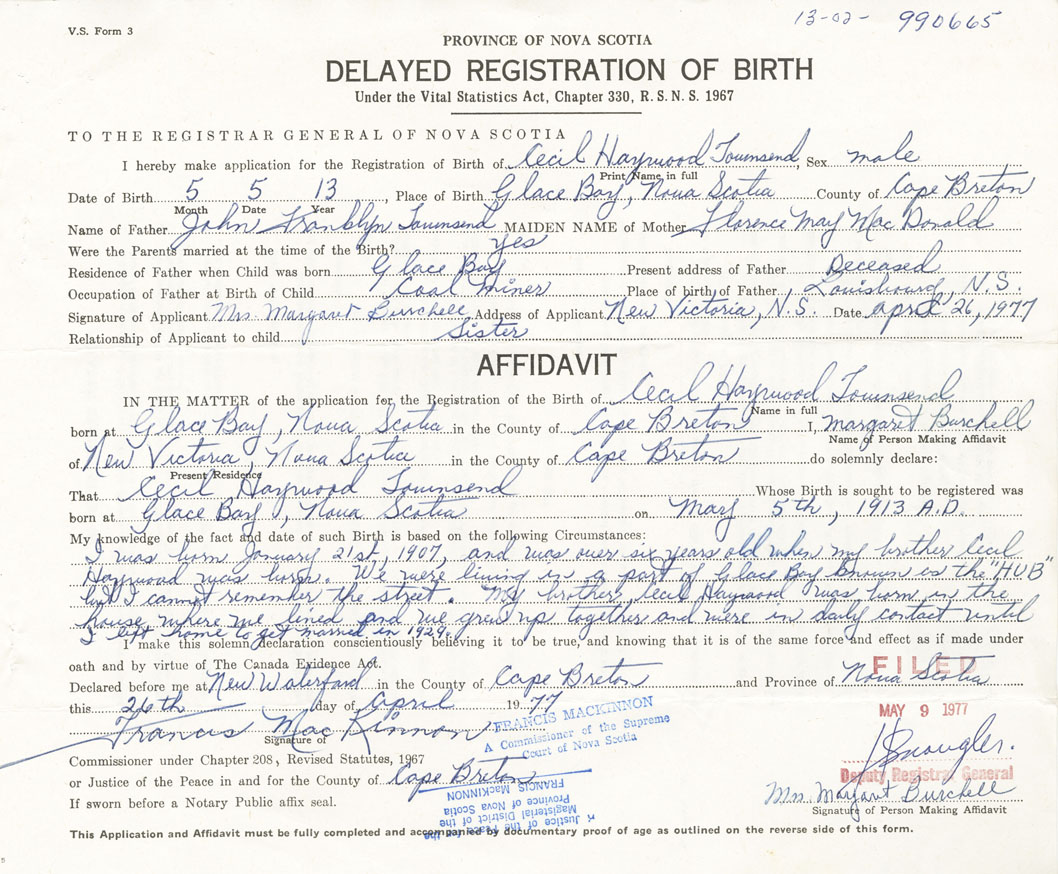 13-02- 990665
V.S. Form 3
PROVINCE OF NOVA SCOTIA
DELAYED REGISTRATION OF BIRTH
Under the Vital Statistics Act, Chapter 330, R.S.N.S. 1967
TO THE REGISTRAR GENERAL OF NOVA SCOTIA
I hereby make application for the Registration of Birth of Cecil Haywood Townsend, Sex male
Print Name in full
Date of Birth 5 5 13, Place of Birth Glace Bay, Nova Scotia County of Cape Breton
Month Date Year
Name of Father John Franklyn Townsend MAIDEN NAME of Mother Florence May MacDonald
Were the Parents married at the time of the Birth? yes
Residence of Father when Child was born Glace Bay Present address of Father Deceased
Occupation of Father at Birth of Child Coal Miner Place of birth of Father Louisbourg, N.S.
Signature of Applicant Mrs. Margaret Burchell Address of Applicant New Victoria, N.S. Date April 26, 1977
Relationship of Applicant to child Sister
AFFIDAVIT
IN THE MATTER of the application for the Registration of the Birth of Cecil Haywood Townsend
Name in full
born at Glace Bay, Nova Scotia in the County of Cape Breton I, Margaret Burchell
Name of Person Making Affidavit
of New Victoria, Nova Scotia in the County of Cape Breton do solemnly declare:
Present Residence
That Cecil Haywood Townsend Whose Birth is sought to be registered was
born at Glace Bay, Nova Scotia on May 5th, 1913 A.D.
My knowledge of the fact and date of such Birth is based on the following Circumstances:
I was born January 21st, 1907, and was over six years old when my brother Cecil
Haywood was born. We were living in a part of Glace Bay known as the "HUB"
but I cannot remember the street. My brother, Cecil Haywood was born in the
house where we lived and we grew up together and were in daily contact until
I left home to get married in 1929.
I make this solemn declaration conscientiously believing it to be true, and knowing that it is of the same force and effect as if made under
oath and by virtue of The Canada Evidence Act.
FILED
Declared before me at New Waterford in the County of Cape Breton and Province of Nova Scotia
this 26th day of April 1977
MAY 9 1977
Francis MacKinnon
Signature of
FRANCIS MACKINNON
A Commissioner of the Supreme
Court of Nova Scotia
Commissioner under Chapter 208, Revised Statutes, 1967
Deputy Registrar General
or Justice of the Peace in and for the County of Cape Breton
Mrs. Margaret Burchell
If sworn before a Notary Public affix seal.
Signature of Person Making Affidavit
FRANCIS MACKINNON
Province of Nova Scotia
Magisterial District of the
Justice of the Peace
This Application and Affidavit must be fully completed and accompanied by documentary proof of age as outlined on the reverse side of this form.